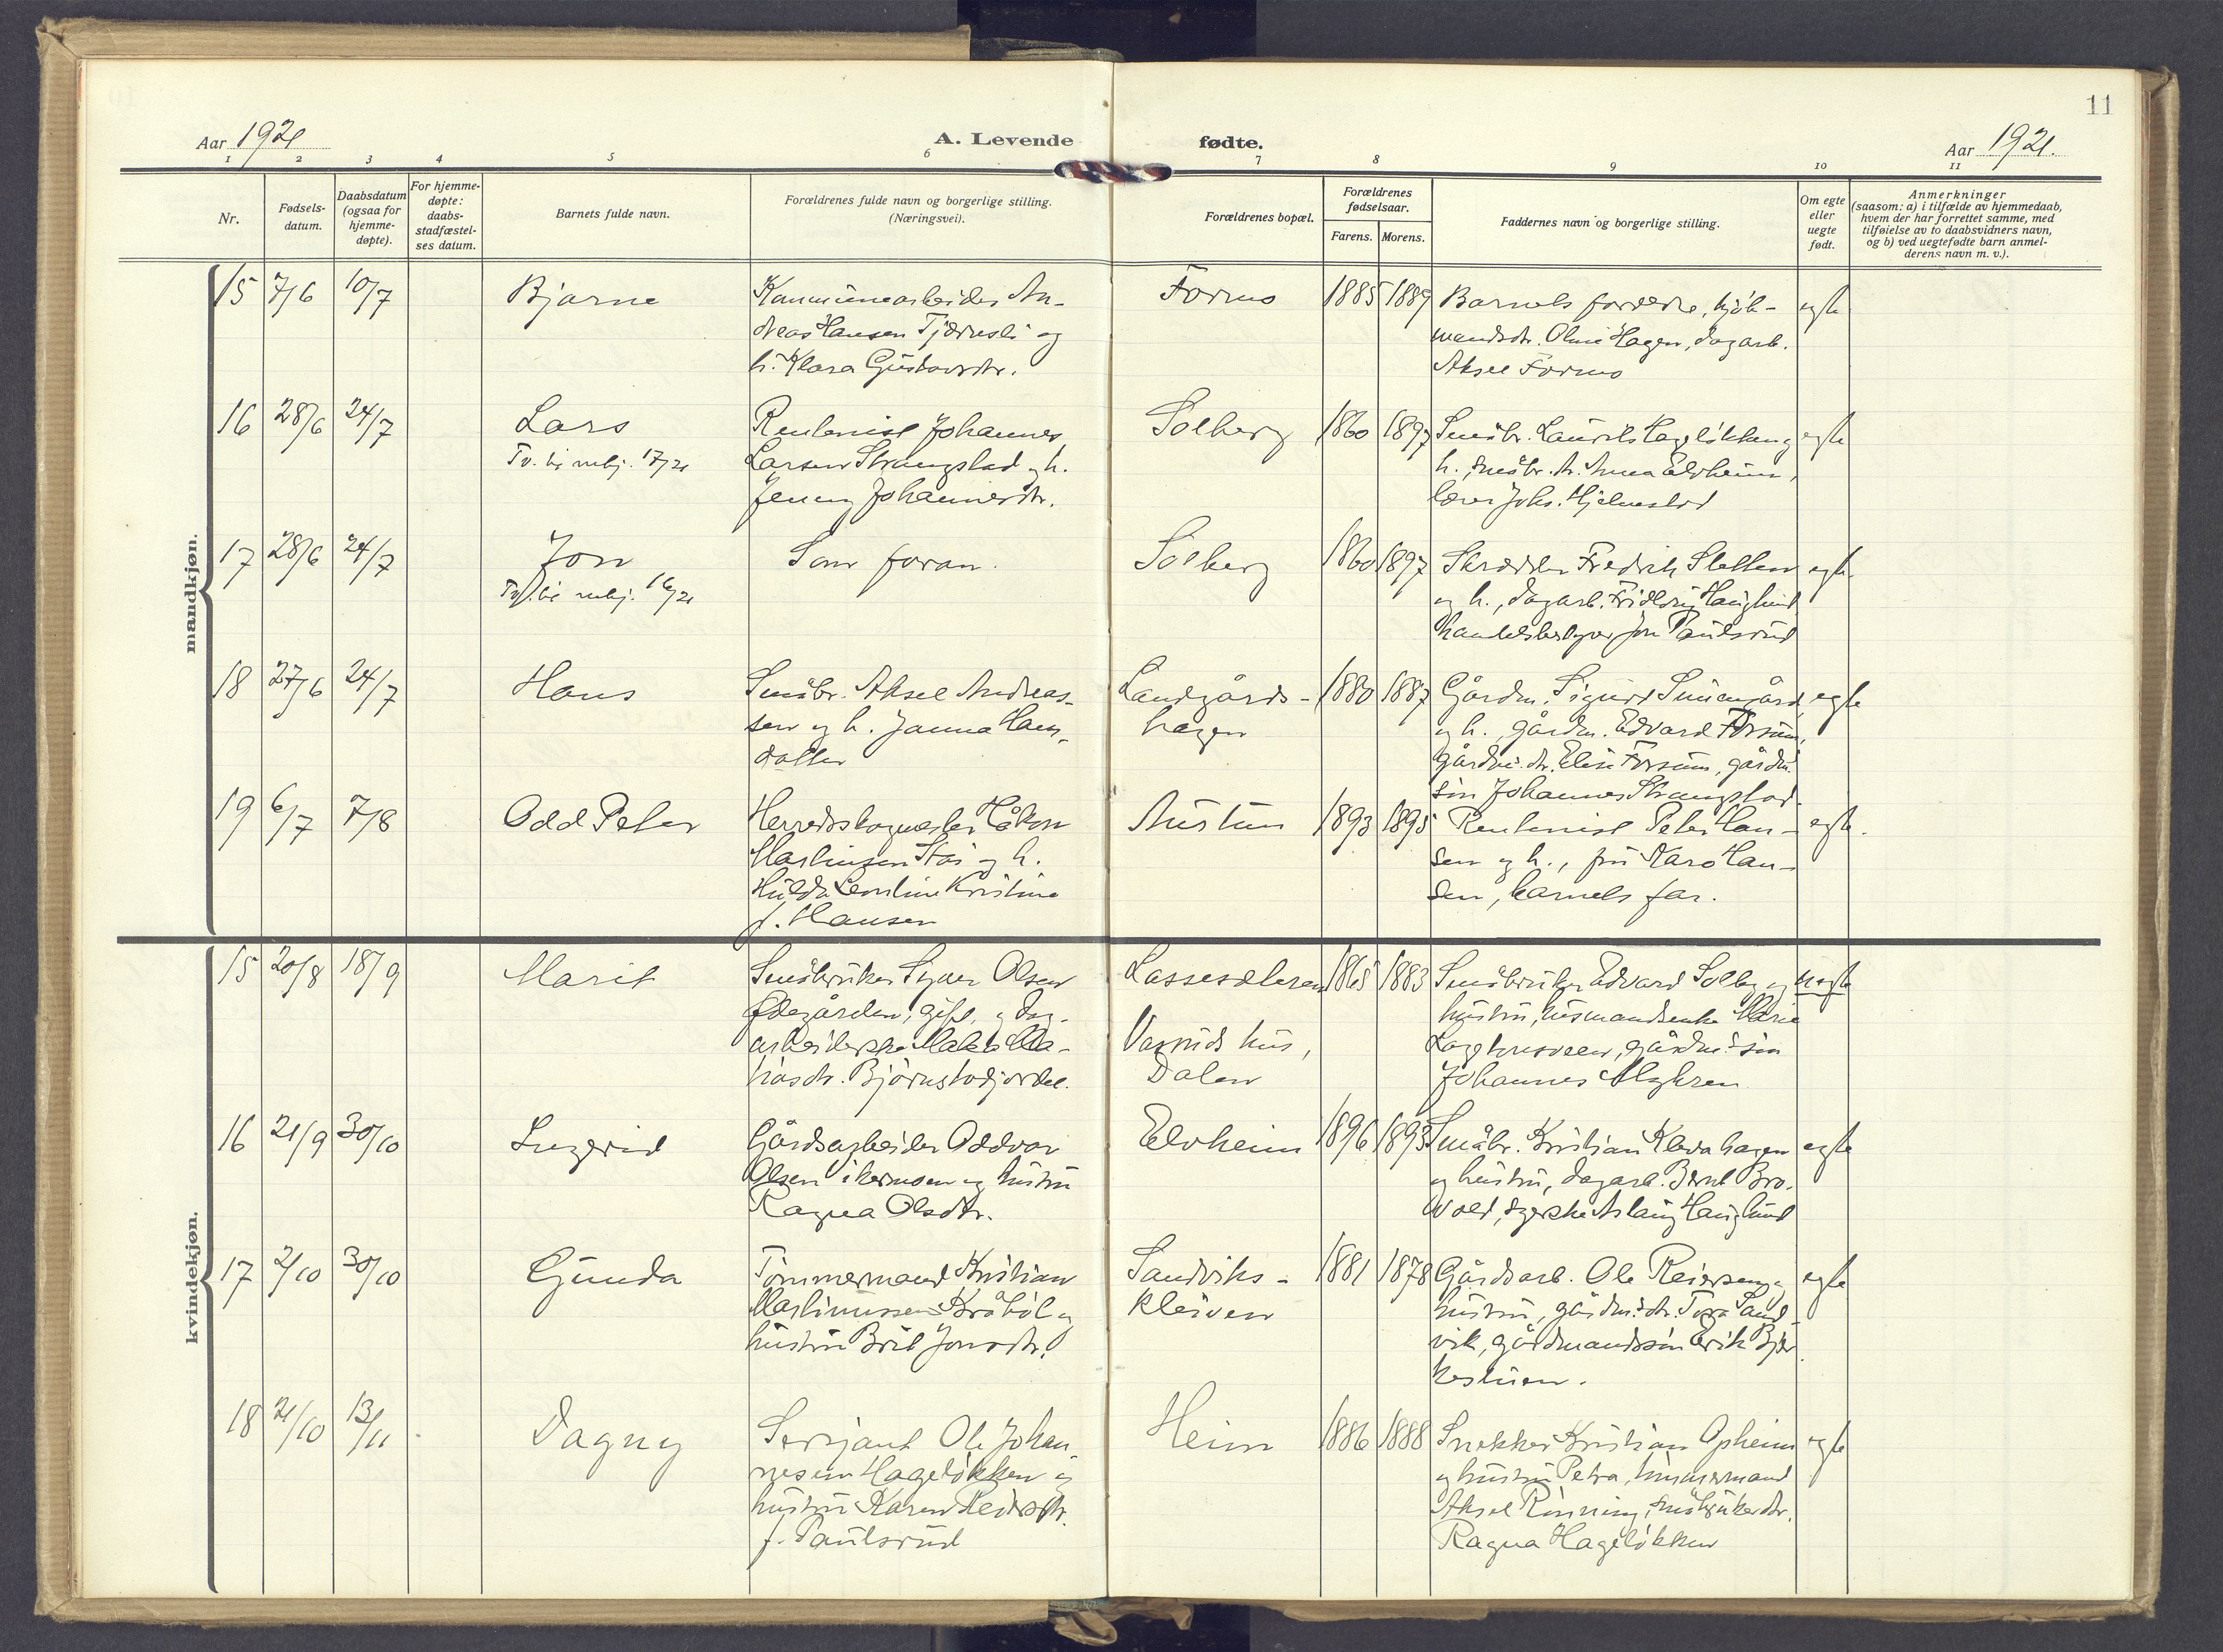 11
Aar 1921
A. Levende fødte.
Aar 1921.
1 2 3 4 5 6 7 8 9 10 11
Nr.
Fødsels-
datum.
Daabsdatum
(ogsaa for
hjemme-
døpte).
For hjemme-
døpte:
daabs-
stadfæstel-
ses datum.
Barnets fulde navn.
Forældrenes fulde navn og borgerlige stilling.
(Næringsvei).
Forældrenes bopæl.
Forældrenes
fødselsaar.
Farens. Morens.
Faddernes navn og borgerlige stilling.
Om egte
eller
uegte
født.
Anmerkninger
(saasom: a) i tilfælde av hjemmedaab,
hvem der har forrettet samme, med
tilføielse av to daabsvidners navn,
og b) ved uegtefødte barn anmel-
derens navn m. v.).
mandkjøn.
15 7/6 10/7 Bjarne
Kommunearbeider An-
dreas Hansen Tjærnsli og
h. Klara Gustavsdtr.
Formo 1885 1889
Barnets forældre, kjøb-
mandsdtr. Hagen, dagarb.
Aksel Formo
egte
16 28/6 24/7 Lars
Tv. 17/21
Rentenist Johannes
Larsen Strangstad og h.
Jenny Johannesdtr.
Solberg 1860 1897
Småbr. Laurits Hageløkken og
h., småbr. dr. Anna Elvheim,
lærer Johs. Hjelmstad
egte
17 28/6 24/7 Jon
16/21
Som foran.
Solberg 1860 1897
Skrædder Fredrik Sletten
og h., dagarb. Hauglund
handelsbestyrer Jon Paulsrud
egte
18 27/6 24/7 Hans
Småbr. Aksel Andreas-
sen og h. Janna Hans-
datter
Landgårds-
hagen
1880 1887
Gårdm. Sigurd
og h., gårdm. Edvard Forsum,
gårdm. dr. Elise Forsum, gårdm.
søn Johannes Strangstad.
egte
19 6/7 7/8 Odd Peter
Herredskogmester Håkon
Martinsen og h.
Hulda Leontine Kristine
f. Hansen
Austun 1893 1895
Rentenist Peter Han-
sen og h., fru Karo Han-
sen, barnets far.
egte.
kvindekjøn.
15 20/8 18/9 Marit
Småbruker Syver Olsen
Ødegården, gift, og dag-
arbeiderske
Bjørnstadjordet.
Lassesæteren
hus,
Dalen
1865 1883
Småbruker Edvard Solby og
hustru, husmandsenke Marie
gårdm. søn
Johannes
uegte
16 21/9 30/10 Ingrid
Gårdsarbeider Oddvar
Olsen og hustru
Ragna Olsdtr.
Elvheim 1896 1893
Småbr. Kristian Klevahagen
og hustru, dagarb. Bernt Bro-
vold, syerske Aslaug Hauglund
egte
17 2/10 30/10 Gunda
Tømmermand Kristian
Martinussen Kråbøl og
hustru Brit Jonsdtr.
Sandviks-
kleiven
1881 1878
Gårdsarb. Ole Reiersen og
hustru, gårdm. dr. Tora Sand-
vik, gårdmandssøn Erik Bjør-
egte
18 21/10 13/11 Dagny
Serjant Ole Johan-
nesen Hageløkken og
hustru Karen Pedersdtr.
f. Paulsrud
Heim 1886 1888
Snekker Kristian Opheim
og hustru Petra, tømmermand
Aksel Rønning, småbrukerdtr.
Ragna Hageløkken
egte